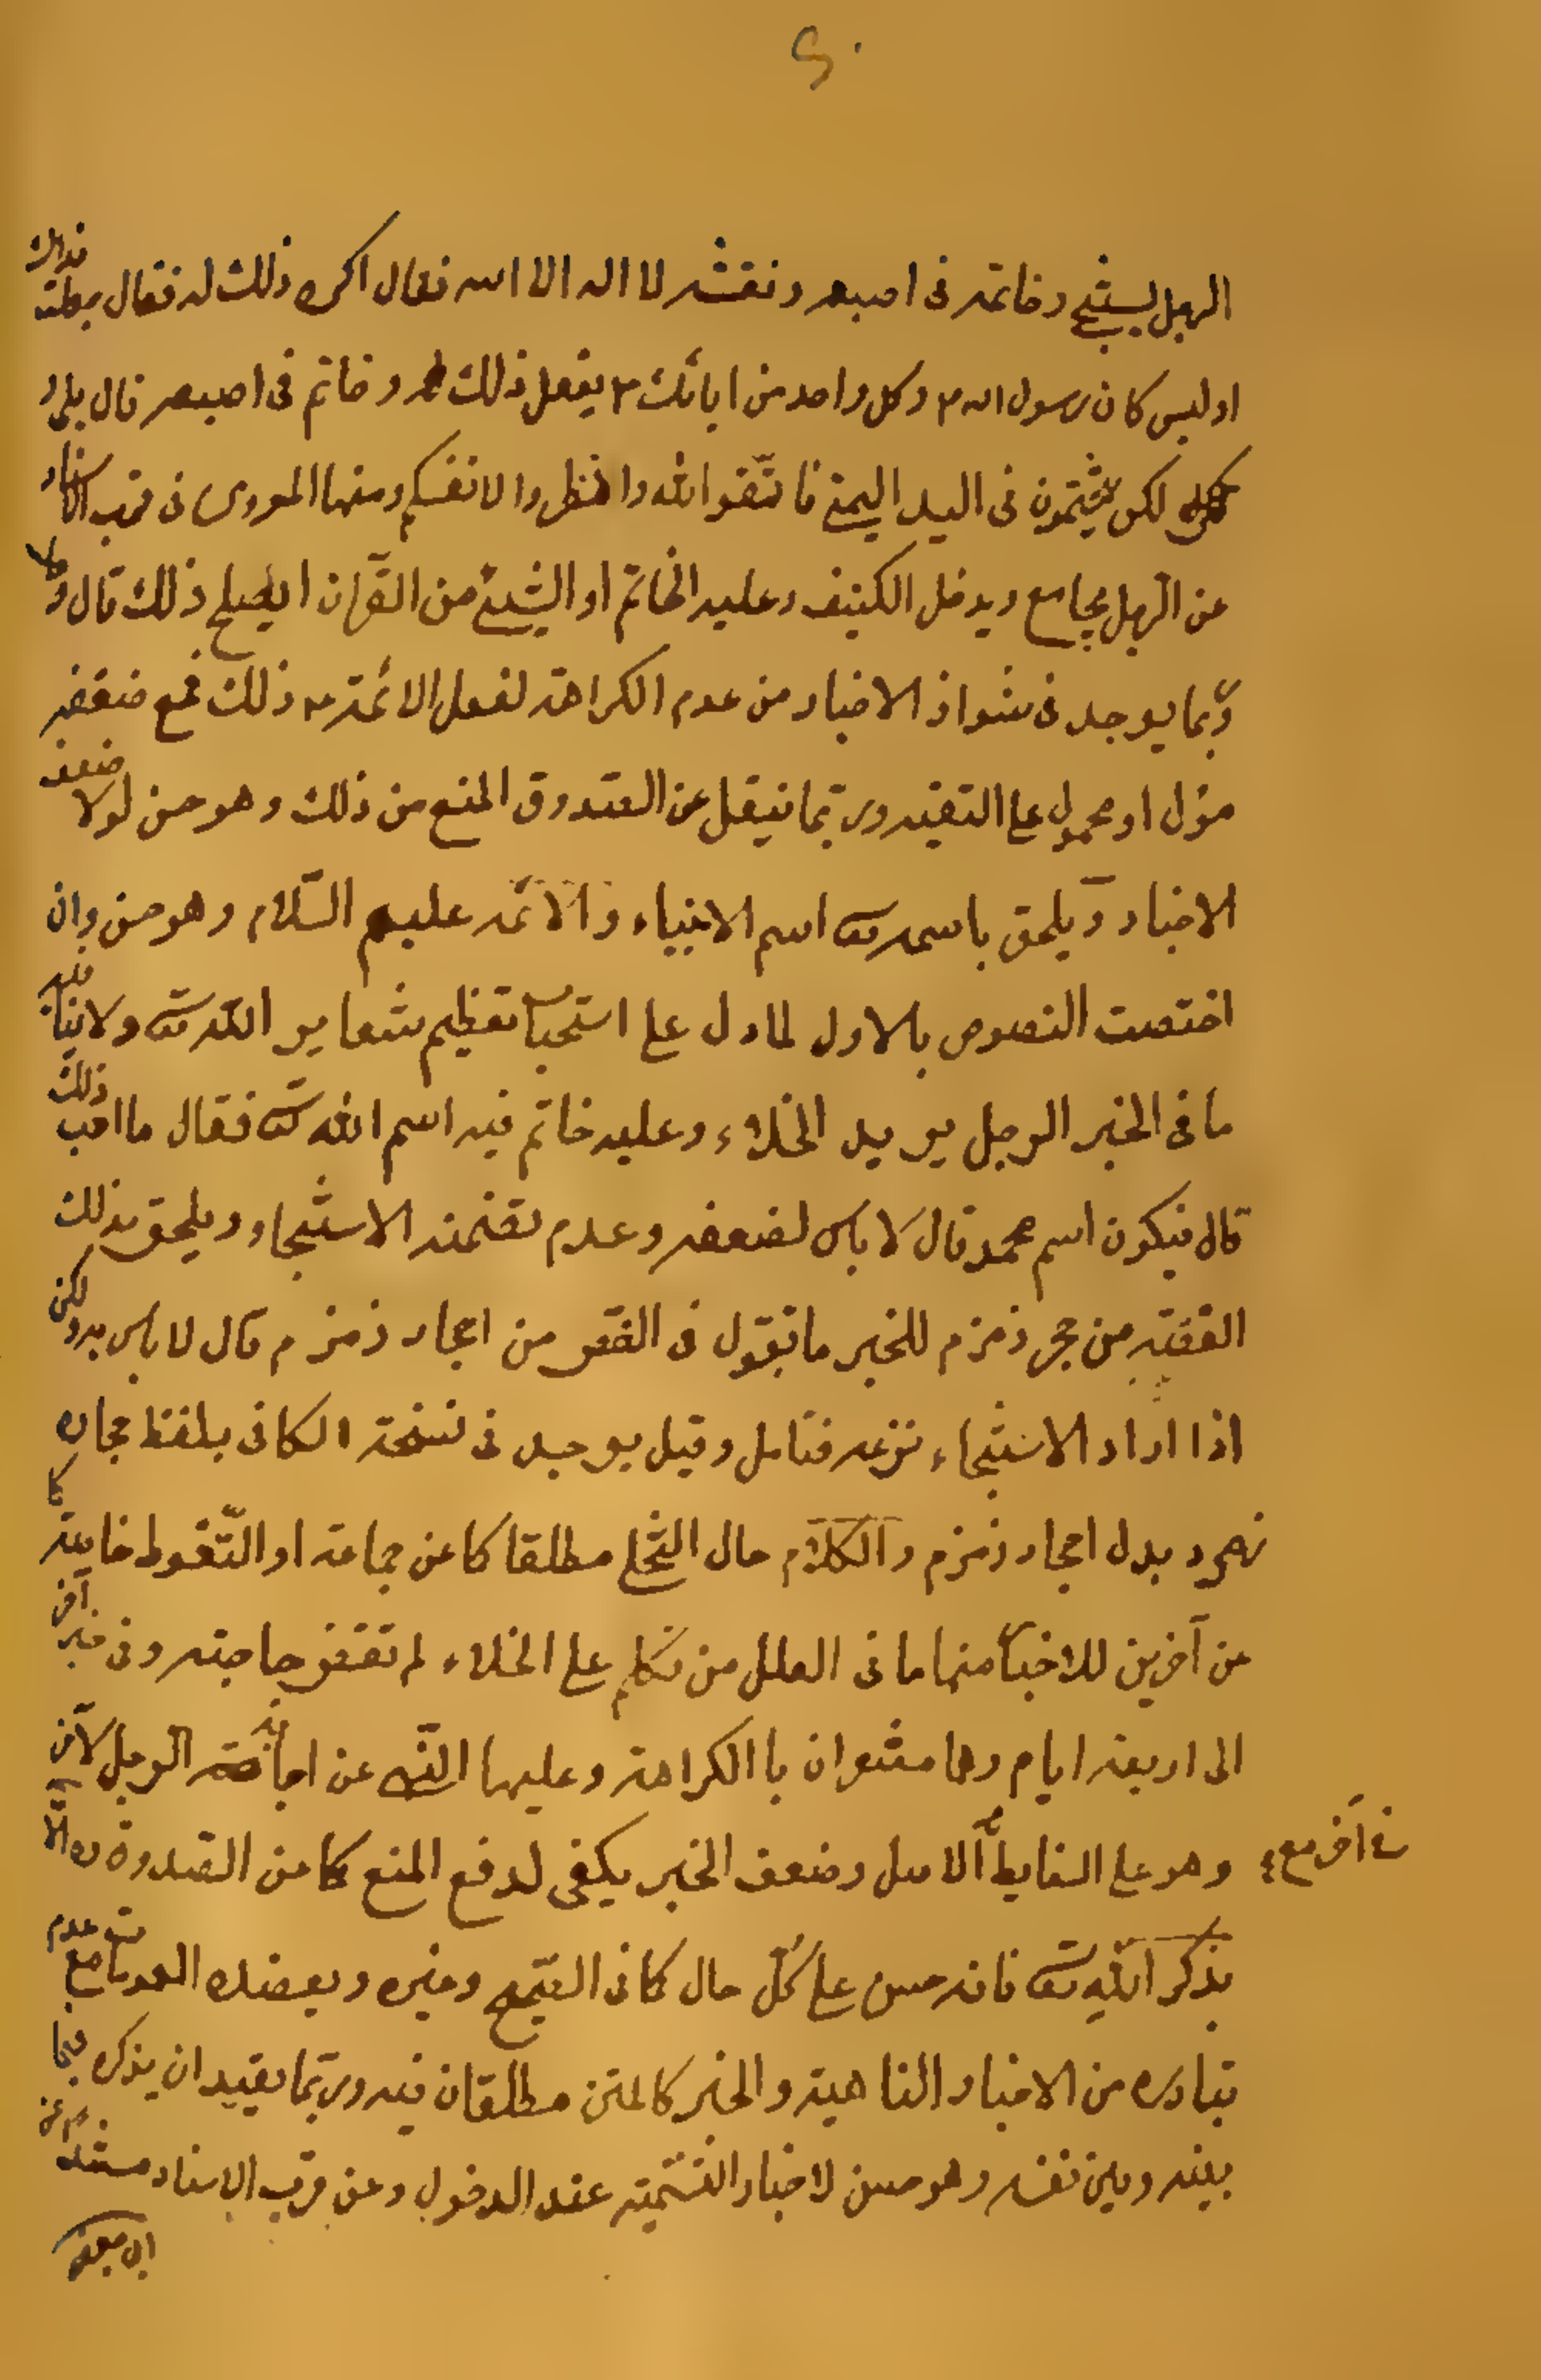 ٢٠
الرجل يستنجي وخاتمه فى اصبعه ونقشه لا اله الا الله فقال اكره ذلك له فقال جعلت فداك
اوليس كان رسول الله ص وكل واحد من ابائك ع يفعل ذلك وخاتمه فى اصبعه قال بلى و
لكن يختمون فى اليد اليمنى فاتقوا الله وانظروا لانفسكم ومنها المروى فى قرب الاسناد
عن الرجل يجامع ويدخل الكنيف وعليه الخاتم او الشيئ من القران ايصلح ذلك قال لا و
ربما يوجد فى شواذ الاخبار من عدم الكراهة لفعل الائمة ع ذلك فمع ضعفه
مؤل او محمول على التقيه وربما نيقل عن الصدوق المنع من ذلك وهو حسن لولا ضعف
الاخبار ويلحق باسمه تعالى اسم الانبياء والائمه عليهم السلام وهو حسن وان
اختصت النصوص بالاول لما دل على استحباب تعظيم شعاير الله تعالى ولا ينافيه
ما فى الخبر الرجل يريد الخلاء وعليه خاتم فيه اسم الله تعالى فقال ما احب ذلك
قال فيكون اسم محمد قال لا باس لضعفه وعدم تضمنه الاستنجاء ويلحق بذلك
الفضة من حجر زمزم للخبر ما تقول فى الفص من احجار زمزم قال لا باس به ولكن
اذا اراد الاستنجاء نزعه فتامل وقيل يوجد فى نسخة الكافى بلفظ حجاره
زمرد بدل احجار زمزم والكلام حال التخلى مطلقا كما عن جماعة او التغوط خاصة كما
عن آخرين للاخبار منها ما فى العلل من تكلم على الخلاء لم تقض حاجته وفى خبر آخر
الى اربعة ايام وهما مشعران باالكراهة وعليها النهى عن اجابة الرجل لآخر
وهو على الغايط الاصل وضعف الخبر يكفى لدفع المنع كما عن الصدوق ره الا
بذكر الله تعالى فانه حسن على كل حال كما فى الصحيح وغيره ويعضده العمومات مع عدم
تبادره من الاخبار الناهية والخبر كالمتن مطلقان فيه وربما يقيد ان يذكره فيما
بينه وبين نفسه وهو حسن لاخبار التسمية عند الدخول وعن قرب الاسناد مسندا عن
ابى جعفر